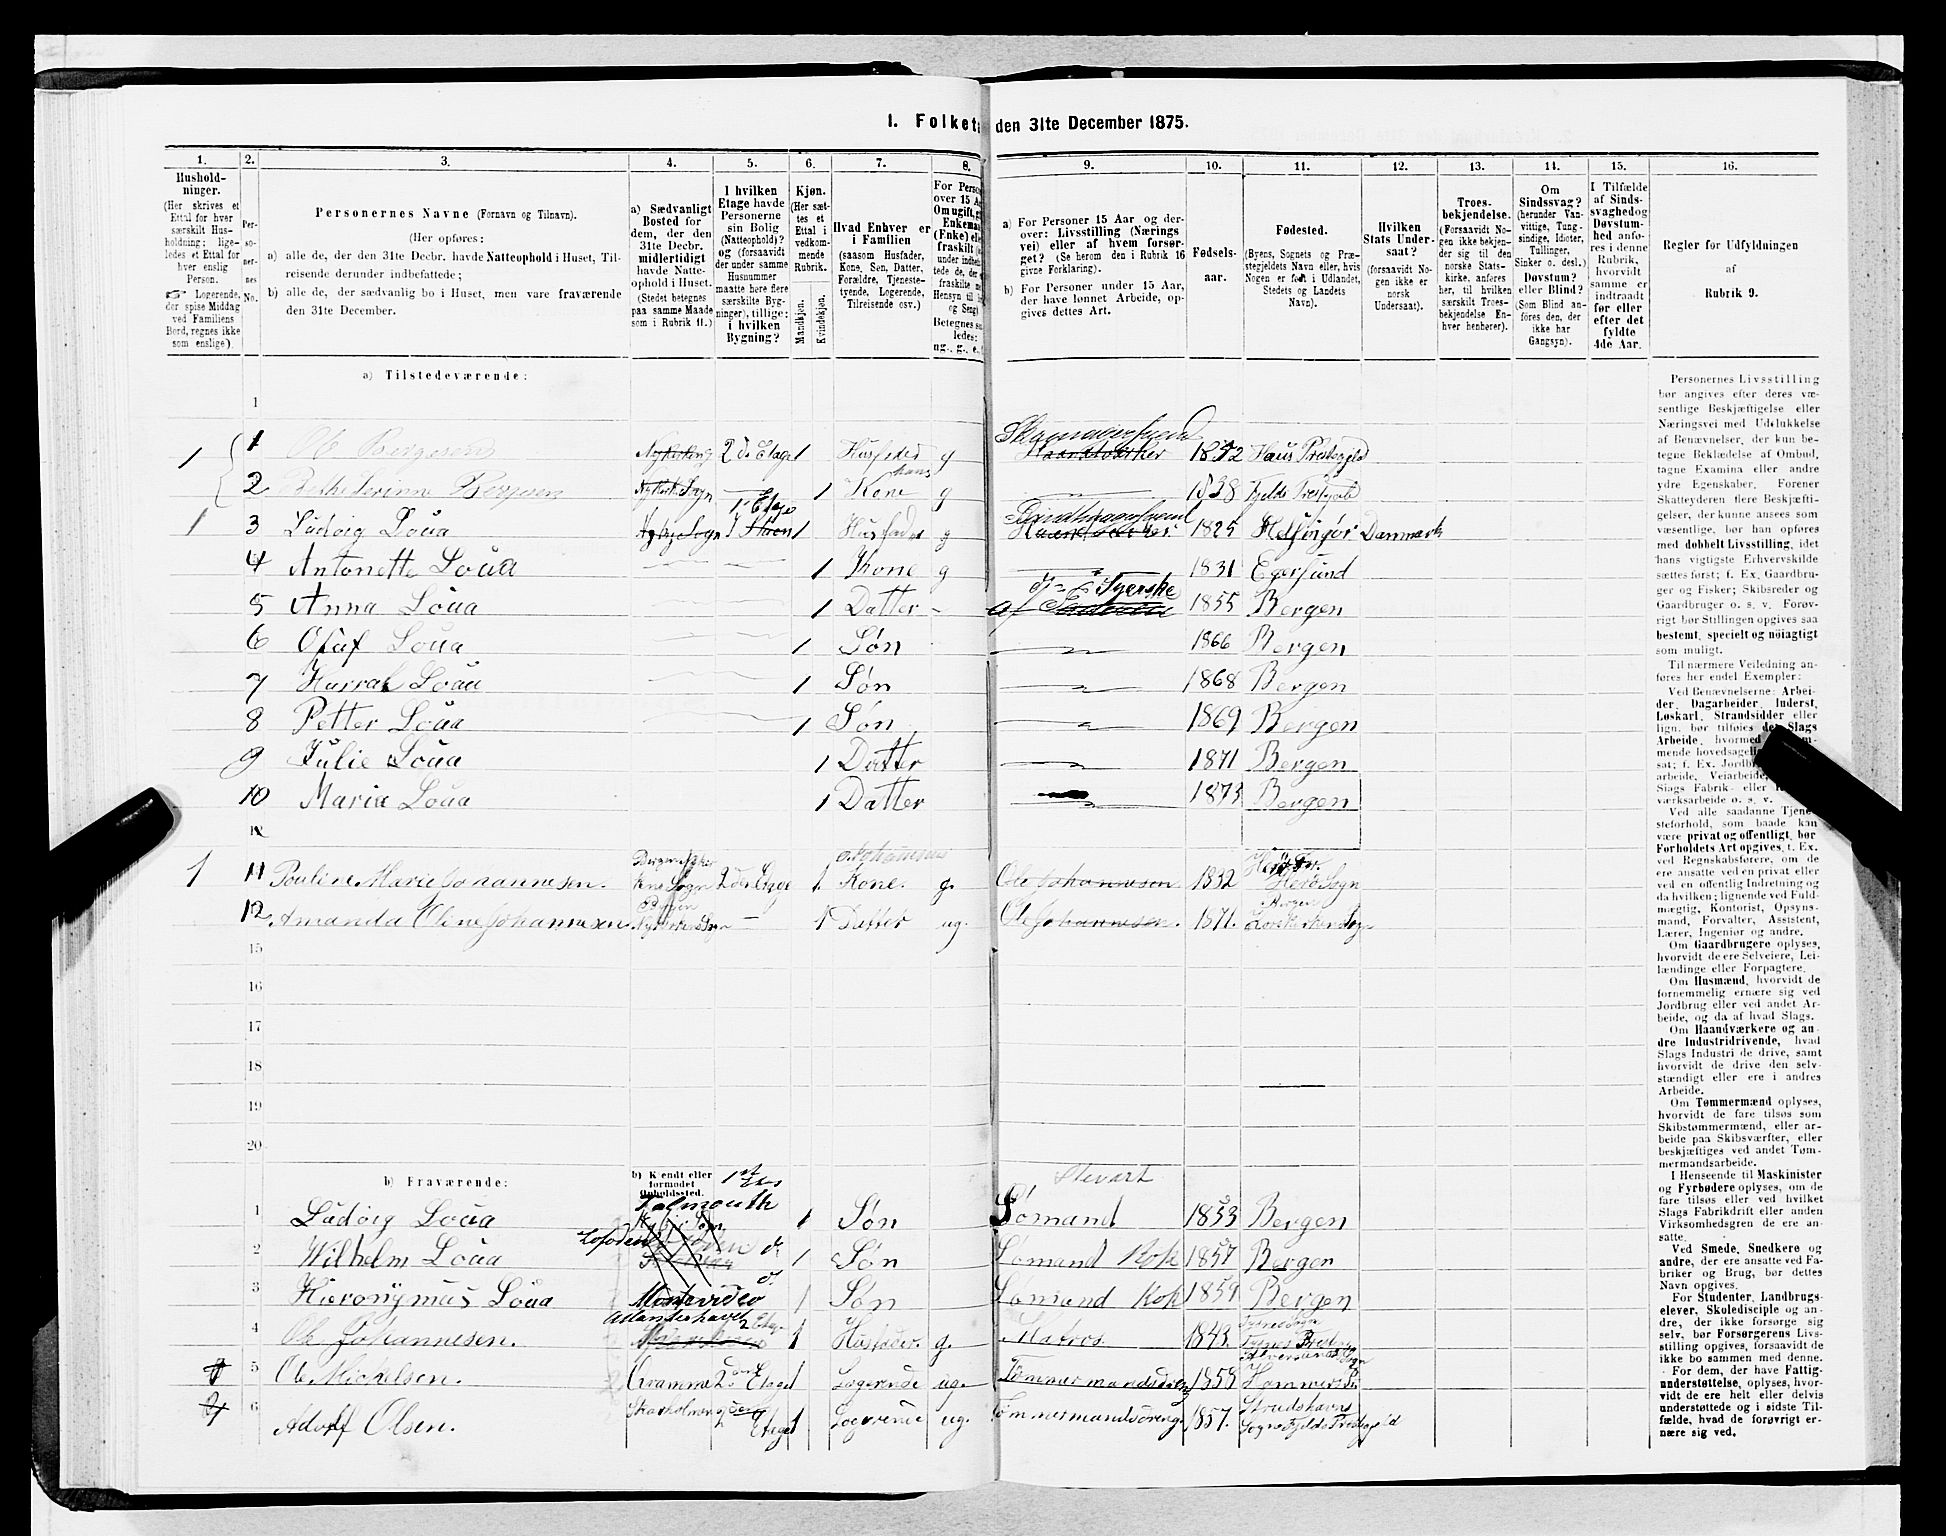 1. Folket den 31te December 1875.
1. 2. 3. 4. 5. 6. 7. 8. 9. 10. 11. 12. 13. 14. 15. 16.
Hushold-
ninger.
(Her skrives et
Ettal for hver
særskilt Hus-
holdning; lige-
ledes et Ettal for
hver enslig
Person.
☞ Logerende,
der spise Middag
ved Familiens
Bord, regnes ikke
som enslige).
Per-
so-
ner-
nes
No.
Personernes Navne (Fornavn og Tilnavn).
(Her opføres:
a) alle de, der den 31te Decbr. havde Natteophold i Huset, Til-
reisende derunder indbefattede;
b) alle de, der sædvanlig bo i Huset, men vare fraværende
den 31te December.
a) Sædvanligt
Bosted for
dem, der den
31te Decbr.
midlertidigt
havde Natte-
ophold i Huset.
(Stedet betegnes
paa samme Maade
som i Rubrik 11.)
I hvilken
Etage havde
Personerne
sin Bolig
(Natteophold)?
og (forsaavidt
der under samme
Husnummer
maatte høre flere
særskilte Byg-
ninger), tillige:
i hvilken
Bygning?
Kjøn.
(Her sæt-
tes et
Ettal i
vedkom-
mende
Rubrik.
Mandkjøn.
Kvindekjøn.
Hvad Enhver er
i Familien
(saasom Husfader,
Kone, Søn, Datter,
Forældre, Tjeneste-
tyende, Logerende,
Tilreisende osv.)
For Person
over 15 Aa
Om ugift, g
Enkeman
(Enke) ell
fraskilt
Hensyn til
og Seng)
Betegnes saa
ledes:
ug., g., e.,
a) For Personer 15 Aar og der-
over: Livsstilling (Nærings
vei) eller af hvem forsør-
get? (Se herom den i Rubrik 16
givne Forklaring).
b) For Personer under 15 Aar,
der have lønnet Arbeide, op-
gives dettes Art.
Fødsels-
aar.
Fødested.
(Byens, Sognets og Præ-
stegjeldets Navn eller, hvis
Nogen er født i Udlandet,
Stedets og Landets
Navn).
Hvilken
Stats Under-
saat?
(forsaavidt No-
gen ikke er
norsk
Undersaat).
Troes-
bekjendelse.
(Forsaavidt No-
gen ikke bekjen-
der sig til den
norske Stats-
kirke, anføres
her, til hvilken
særskilt Troes-
bekjendelse En-
hver henhører).
Om
Sindssvag?
(herunder Van-
vittige, Tung-
sindige, Idioter,
Tullinger,
Sinker o. desl.)
Døvstum?
eller Blind?
(Som Blind an-
føres den, der
ikke har
Gangsyn).
I Tilfælde
af Sinds-
svaghed og
Døvstum-
hed anfø-
res i denne
Rubrik,
hvorvidt
samme er
indtraadt
før eller
efter det
fyldte
4de Aar.
Regler for Udfyldningen
af
Rubrik 9.
a) Tilstedeværende:
1
1 1 Bergesen 2 d. Etage 1 Husfader g 1852 Haus Prestegjeld
2 Bergesen 1 Kone g 1838
1 3 Ludvig Loua 1. Etage 1 Husfader g 1825 Helsingør Danmark
4 Antonette Loua 1 Kone g 1831 Egersund
5 Anna Loua 1 Datter Syerske 1855 Bergen
6 Olaf Loua 1 Søn 1866 Bergen
7 Harral Loua 1 Søn 1868 Bergen
8 Petter Loua 1 Søn 1869 Bergen
9 Julie Loua 1 Datter 1871 Bergen
10 Maria Loua 1 Datter 1873 Bergen
1 11 Pouline Marie Johannesen. 2den Etage 1 Kone. g. Ole Johannesen 1832 Herø Sogn
12 Amanda Oline Johannesen 1 Datter ug. Ole Johannesen. 1871. Korskirkens Sogn
15
16
17
18
19
20
b) Fraværende:
b) Kjendt eller
formodet
Opholdssted.
1 Ludvig Loua Falmouth 1 Søn Sømand Stevart 1853 Bergen
2 Wilhelm Loua Lofoden 1 Søn Sømand Kok 1857 Bergen
3 Hieronymus Loua Montevideo 1 Søn Sømand Kok 1859 Bergen
4 Ole Johannesen. Atlanderhavet 2 Etage 1 Husfader. g. Matros. 1843.
5 Ole Mickelsen. Qvamme 2 den Etage 1 Logerende ug. Tømmermandsdreng 1855
6 Adolf Olsen. 2 den Etage 1 Logerende ug. Tømmermandsdreng. 1857.
Personernes Livsstilling
bør angives efter deres væ-
sentlige Beskjæftigelse eller
Næringsvei med Udelukkelse
af Benævnelser, der kun be-
tegne Beklædelse af Ombud,
tagne Examina eller andre
ydre Egenskaber. Forener
Skatteyderen flere Beskjæfti-
gelser, der kunne ansees som
væsentlige, bør han opføres
med dobbelt Livsstilling, idet
hans vigtigste Erhvervskilde
sættes først; f. Ex. Gaardbru-
ger og Fisker; Skibsreder og
Gaardbruger o. s. v. Forøv-
rigt bør Stillingen opgives saa
bestemt, specielt og nøiagtigt
som muligt.
Til nærmere Veiledning an-
føres her endel Exempler:
Ved Benævnelserne: Arbei-
der, Dagarbeider, Inderst,
Løskarl, Strandsidder eller
lign. bør tilføies det Slags
Arbeide, hvormed
mende hovedsagelig
sat; f. Ex. Jordbr
arbeide, Veiarbeide,
Slags Fabrik- eller
værksarbeide o. s. v.
Ved alle saadanne Tjene-
steforhold, som baade kan
være privat og offentligt, bør
Forholdets Art opgives, t. Ex.
ved Regnskabsførere, om de
ere ansatte ved en privat eller
ved en offentlig Indretning og
da hvilken; lignende ved Fuld-
mægtig, Kontorist, Opsyns-
mand, Forvalter, Assistent,
Lærer, Ingeniør og andre.
Om Gaardbrugere oplyses,
hvorvidt de ere Selveiere, Lei-
lændinge eller Forpagtere.
Om Husmænd, hvorvidt de
fornemmelig ernære sig ved
Jordbrug eller ved andet Ar-
beide, og da af hvad Slags.
Om Haandværkere og an-
dre Industridrivende, hvad
Slags Industri de drive, samt
hvorvidt de drive den selv-
stændigt eller ere i andres
Arbeide.
Om Tømmermænd oplyses,
hvorvidt de fare tilsøs som
Skibstømmermænd, eller ar-
beide paa Skibsværfter, eller
beskjæftiges ved andet Tøm-
mermandsarbeide.
I Henseende til Maskinister
og Fyrbødere oplyses, om de
fare tilsøs eller ved hvilket
Slags Fabrikdrift eller anden
Virksomhedsgren de ere an-
satte.
Ved Smede, Snedkere og
andre, der ere ansatte ved Fa-
briker og Brug, bør dettes
Navn opgives.
For Studenter, Landbrugs-
elever, Skoledisciple og an-
dre, der ikke forsørge sig
selv, bør Forsørgerens Livs-
stilling opgives, forsaavidt de
ikke bo sammen med denne.
For dem, der have Fattig-
understøttelse, oplyses, hvor-
vidt de ere helt eller delvis
understøttede og i sidste Til-
fælde, hvad de forøvrigt er-
nære sig ved.